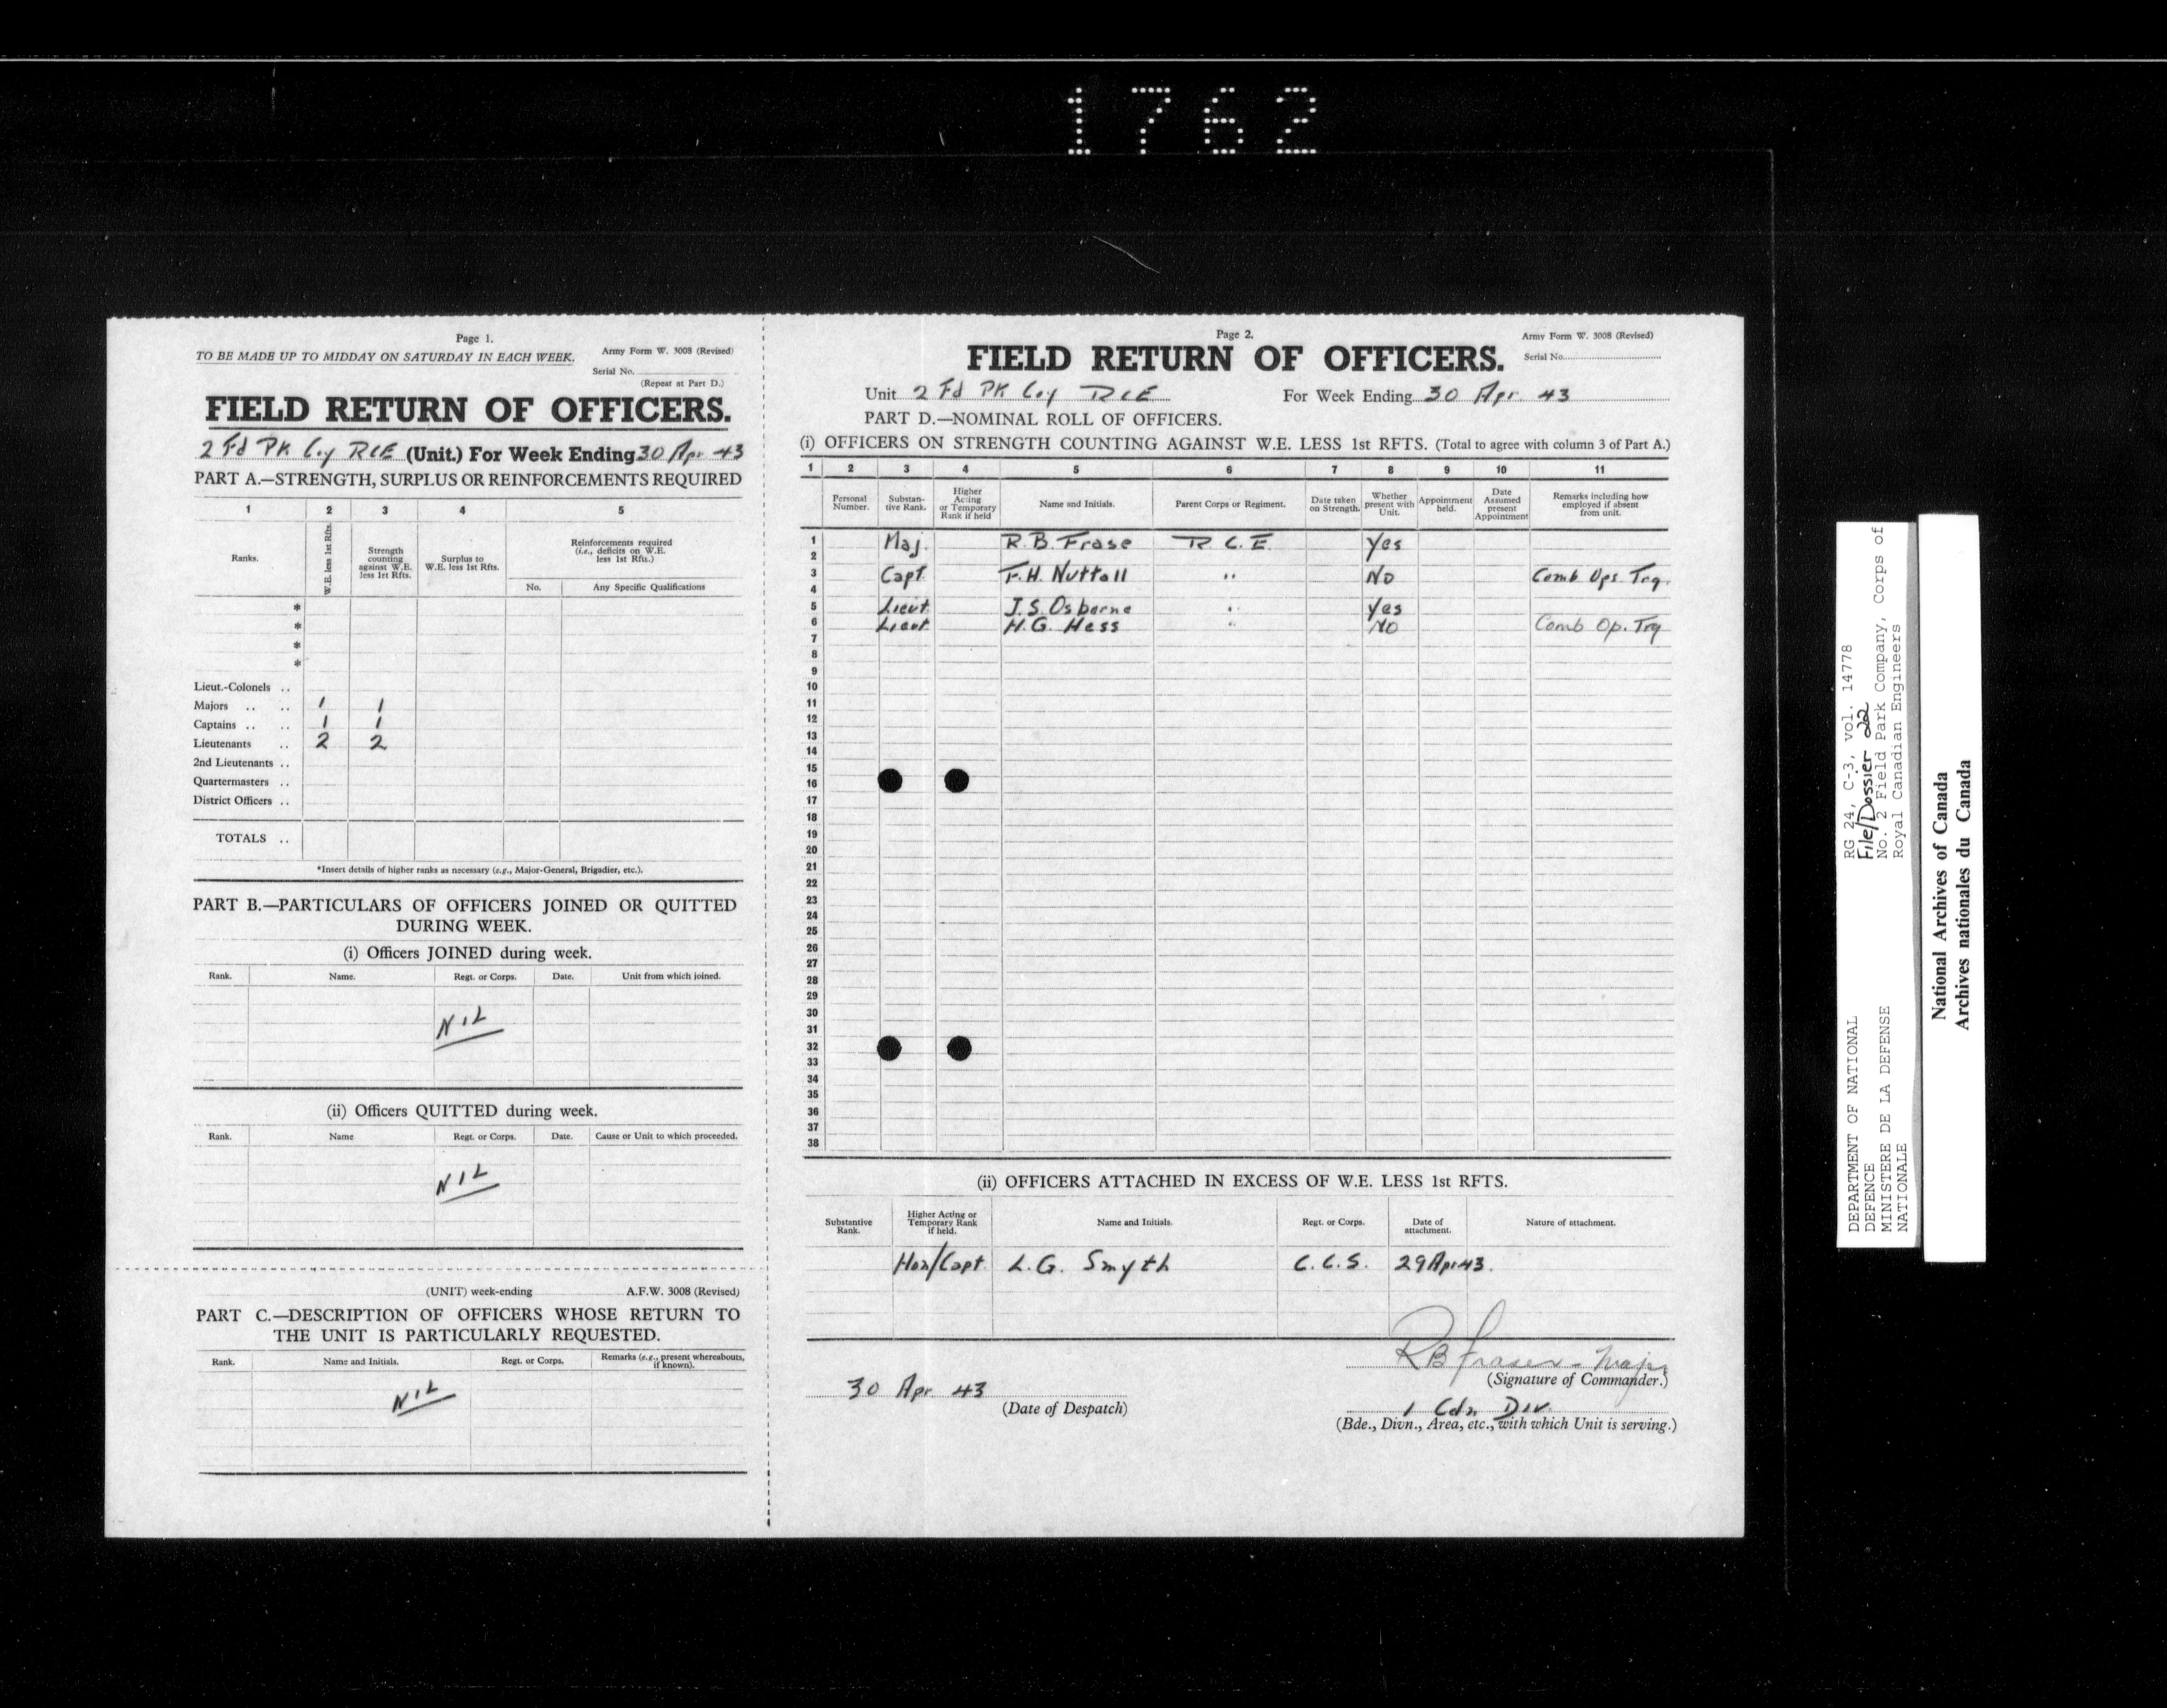 1762
Page 1.
TO BE MADE UP TO MIDDAY ON SATURDAY IN EACH WEEK.
Army Form W. 3008 (Revised)
Serial No.
(Repeat at Part D.)
FIELD RETURN OF OFFICERS.
2 Fd PK Coy RCE (Unit.) For Week Ending 30 Apr 43
PART A.—STRENGTH, SURPLUS OR REINFORCEMENTS REQUIRED
1 2 3 4 5
Ranks.
W.E. less 1st Rfts.
Strength counting against W.E. less 1rt Rfts.
Surplus to W.E. less 1st Rfts.
Reinforcements required (i.e., deficits on W.E. less 1st Rfts.)
No. Any Specific Qualifications
*
*
*
*
Lieut.-Colonels ..
Majors .. .. 1 1
Captains .. .. 1 1
Lieutenants .. 2 2
2nd Lieutenants ..
Quartermasters ..
District Officers ..
TOTALS ..
*Insert details of higher ranks as necessary (e.g., Major-General, Brigadier, etc.).
PART B.—PARTICULARS OF OFFICERS JOINED OR QUITTED
DURING WEEK.
(i) Officers JOINED during week.
Rank. Name. Regt. or Corps. Date. Unit from which joined.
NIL
(ii) Officers QUITTED during week.
Rank. Name Regt. or Corps. Date. Cause or Unit to which proceeded.
NIL
(UNIT) week-ending A.F.W. 3008 (Revised)
PART C.—DESCRIPTION OF OFFICERS WHOSE RETURN TO
THE UNIT IS PARTICULARLY REQUESTED.
Rank. Name and Initials. Regt. or Corps. Remarks (e.g., present whereabouts, if known).
NIL
Page 2.
Army Form W. 3008 (Revised)
FIELD RETURN OF OFFICERS.
Serial No.
Unit 2 Fd PK Coy RCE For Week Ending 30 Apr. 43
PART D.—NOMINAL ROLL OF OFFICERS.
(i) OFFICERS ON STRENGTH COUNTING AGAINST W.E. LESS 1st RFTS. (Total to agree with column 3 of Part A.)
1 2 3 4 5 6 7 8 9 10 11
Personal Number.
Substantive Rank.
Higher Acting or Temporary Rank if held
Name and Initials.
Parent Corps or Regiment.
Date taken on Strength.
Whether present with Unit.
Appointment held.
Date Assumed present Appointment
Remarks including how employed if absent from unit.
1 Maj. R.B. Frase R.C.E. Yes
2
3 Capt. F.H. Nuttall " No Comb Ops Trg.
4
5 Lieut J.S. Osborne " Yes
6 Lieut H.G. Hess " No Comb Op. Trg
7
8
9
10
11
12
13
14
15
16
17
18
19
20
21
22
23
24
25
26
27
28
29
30
31
32
33
34
35
36
37
38
(ii) OFFICERS ATTACHED IN EXCESS OF W.E. LESS 1st RFTS.
Substantive Rank.
Higher Acting or Temporary Rank if held.
Name and Initials.
Regt. or Corps.
Date of attachment.
Nature of attachment.
Hon/Capt. L.G. Smyth C.C.S. 29 Apr 43.
RB Fraser - Major
(Signature of Commander.)
30 Apr 43
(Date of Despatch)
1 Cdn Div.
(Bde., Divn., Area, etc., with which Unit is serving.)
DEPARTMENT OF NATIONAL
DEFENCE
MINISTERE DE LA DEFENSE
NATIONALE
RG 24, C-3, vol. 14778
File/Dossier 22
No. 2 Field Park Company, Corps of
Royal Canadian Engineers
National Archives of Canada
Archives nationales du Canada